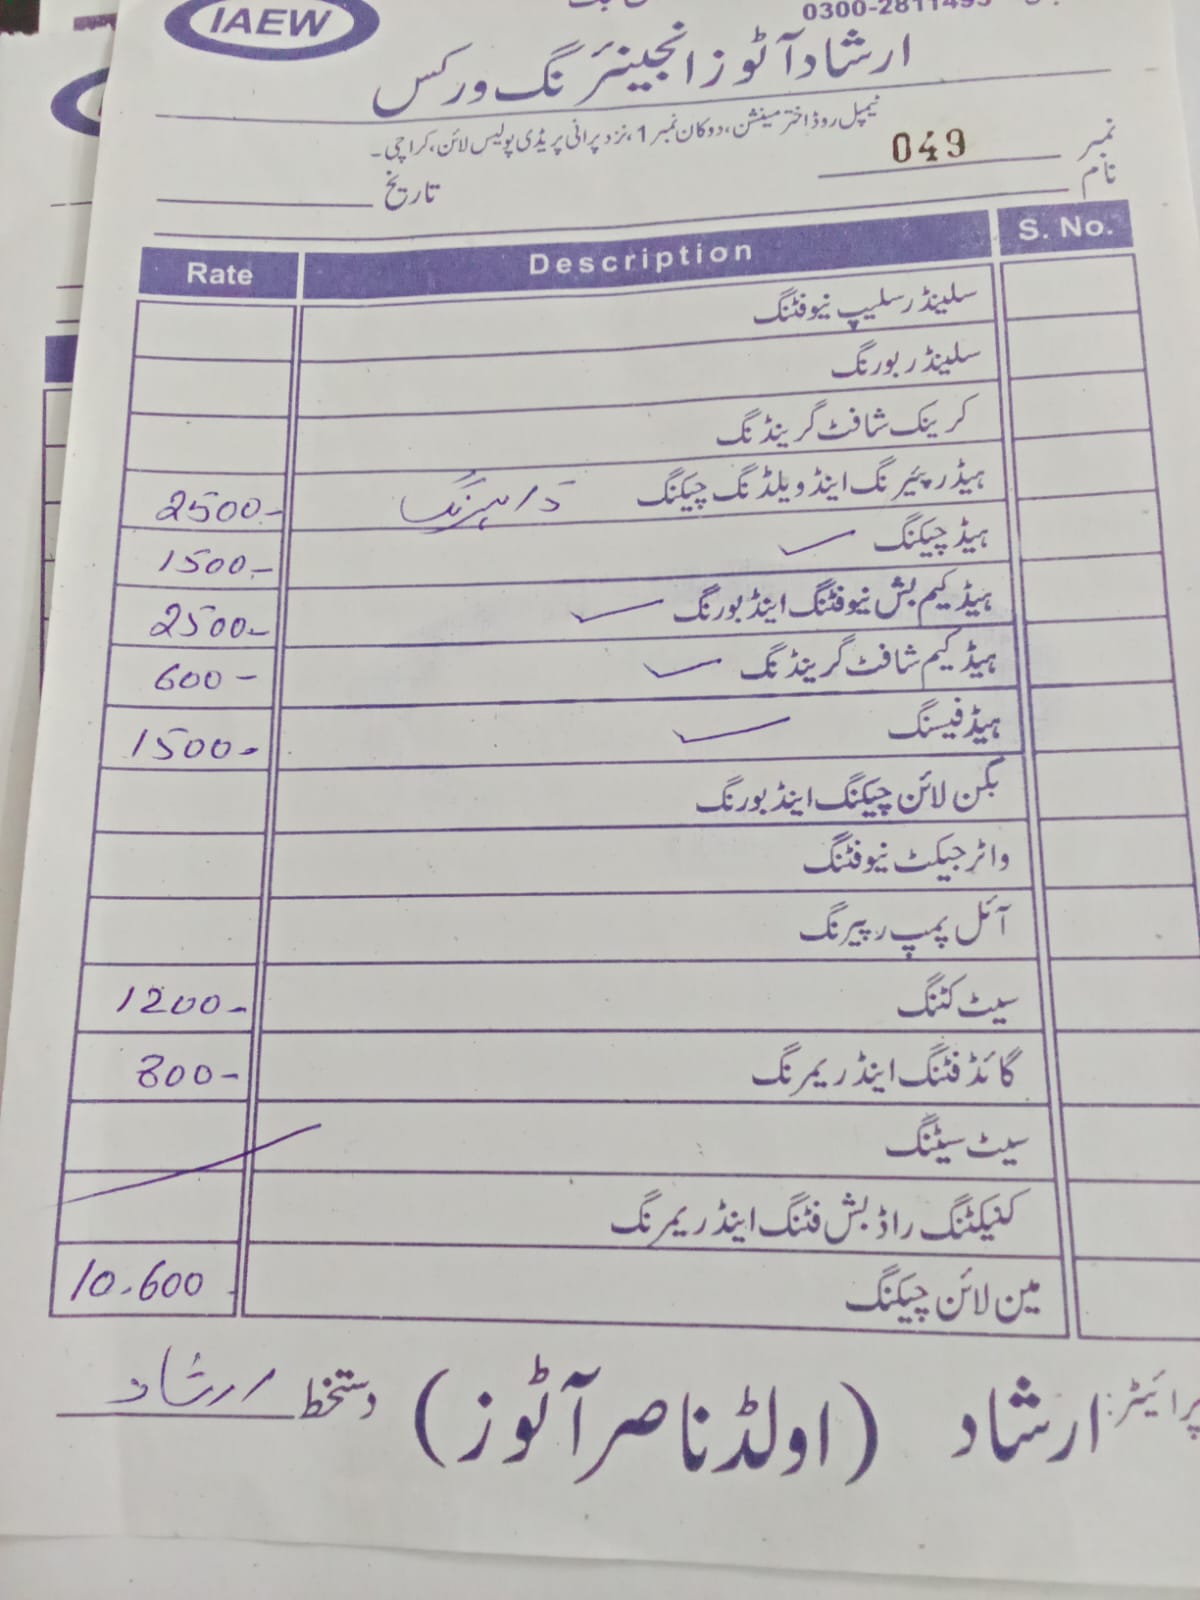 IAEW
ارشاد آٹوز انجینئرنگ ورکس
نیپل روڈ اختر مینشن، دوکان نمبر 1، نزد پرانی پریڈی پولیس لائن، کراچی۔
نمبر 049
نام
تاریخ
S. No. Description Rate
سلینڈر سلیپ نیو فٹنگ
سلینڈر بورنگ
کرینک شافٹ گرینڈنگ
ہیڈ رپیئرنگ اینڈ ویلڈنگ چیکنگ 2500-
ہیڈ چیکنگ 1500-
ہیڈ کیم بش نیو فٹنگ اینڈ بورنگ 2500-
ہیڈ کیم شافٹ گرینڈنگ 600-
ہیڈ فیسنگ 1500-
بگن لائن چیکنگ اینڈ بورنگ
واٹر جیکٹ نیو فٹنگ
آئل پمپ رپیرنگ
سیٹ کٹنگ 1200-
گائڈ فٹنگ اینڈ ریمرنگ 800-
سیٹ سیٹنگ
کنیکٹنگ راڈ بش فٹنگ اینڈ ریمرنگ
مین لائن چیکنگ 10.600
پرائیٹر: ارشاد (اولڈ ناصر آٹوز) دستخط ارشاد